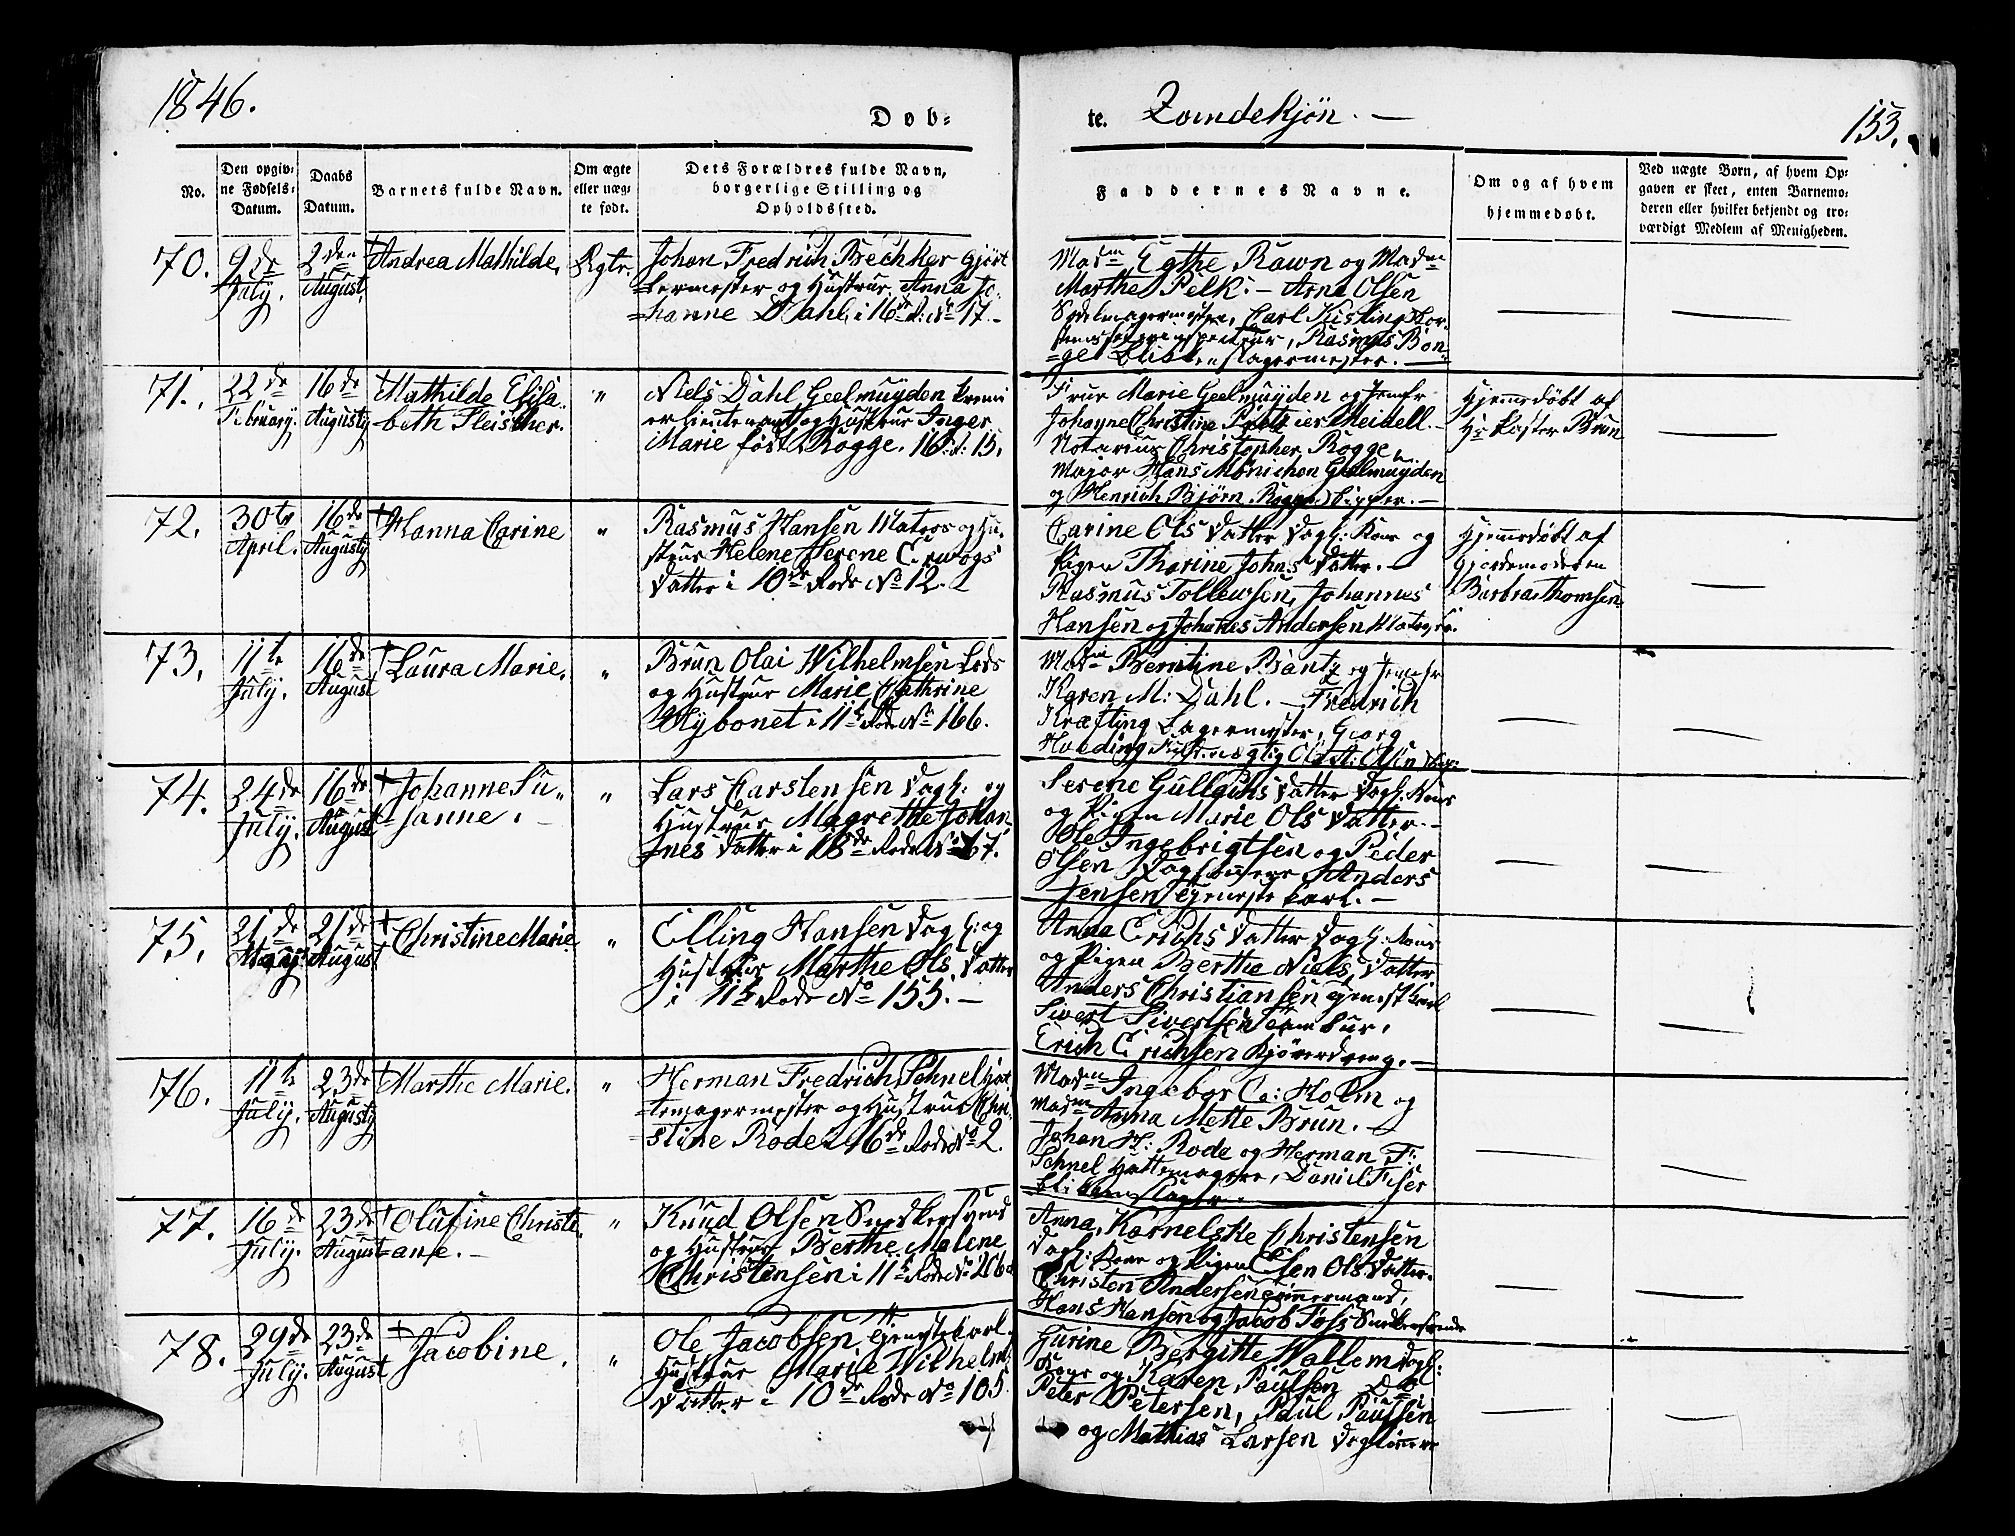 1846.
Døb-
te. Qvindekjøn. —
153.
No.
Den opgiv-
ne Fødsels-
Datum.
Daabs
Datum.
Barnets fulde Navn.
Om ægte
eller uæg-
te født.
Dets Forældres fulde Navn,
borgerlige Stilling og
Opholdssted.
Faddernes Navne.
Om og af hvem
hjemmedøbt.
Ved uægte Børn, af hvem Op-
gaven er skeet, enten Barnemo-
deren eller hvilket bekjendt og tro-
værdigt Medlem af Menigheden.
70.
9de
July.
2den
August.
Andrea Mathilde.
Ægte.
Johan Fredrich Bechker Gjört
lermester og Hustrue Anna Jo-
hanne Dahl, i 16de R: No 17.
Madm Egthe Rawn og Madm
Marthe Pelk. — Arna Olsen
Sadelmagermester, Carl Kisling
Rasmus Bøn-
ge Blikkenslagermester.
71.
22de
February.
16de
Augusty
Mathilde Elisa-
beth Fleischer.
"
Niels Dahl Geelmuyden Premi
er Lieutenant og Hustrue Inger
Marie født Rogge. 16 R: 15.
Frue Marie Geelmuyden og Jomfr
Johanne Christine Meidell. —
Notarius Christopher Rogge
Major Hans Mønichen Geelmuyden
og Henrich Bjørn Rogge Skipper. —
Hjemedøbt af
Hr Kaster Brun
72.
30te
April.
16de
Augusty
Hanna Carine
"
Rasmus Hansen Matros og Hu-
strue Helene Serene
Datter i 10de Rode No 12.
Carine Ols Datter Dagl: Kone og
Pigen Thorine Johns Datter. —
Rasmus Tollevsen, Johannes
Hansen og Johanes Andersen Matroser.
Hjemedøbt af
Gjordemoderen
Barbra Thomsen
73.
11te
July.
16de
August
Laura Marie.
"
Brun Olai Wilhelmsen Lods
og Hustrue Marie Cathrine
Nybonet i 11te Rode No 166.
Madm Berntine Bantz og Jomfr
Karen M: Dahl. — Fredrich
Kræfting Lagermester, Georg
74.
24de
July.
16de
August
Johanne Su-
sanne. —
"
Lars Carstensen Dagl: og
Hustrue Magrethe Johan-
nes Datter i 18de Rode No 67.
Serene Gulluchs Datter Dagl: Kone
og Pigen Marie Ols Datter. —
Ole Ingebrigtsen og Peder
Olsen Dagleiere Anders
Jensen Tjeneste karl. —
75.
21de
August
Christine Marie
"
Elling Hansen Dagl: og
Hustrue Marthe Ols Datter
i 11te Rode No 155. —
Anna Erichs Datter Dagl: Kone
og Pigen Berthe Niels Datter
Anders Christiansen Tjenestkarl
Sivert Sivertsen Tambur.
Erich Erichsen Kjørerdreng. —
76.
11te
July.
23de
Augusty
Marthe Marie.
"
Herman Fredrich Schnel Hat
temagermester og Hustrue Chri-
stine Rode i 16de Rode No 2.
Madm Ingebor C: Holm og
Madm Anna Mette Brun. —
Johan H: Rode og Herman F:
Schnel Hattemagere, Daniel Fiser
blikkenslager.
77.
16de
July.
23de
August
Olufine Christi-
ane. —
"
Knud Olsen Snedkersvend
og Hustrue Berthe Malene
Christensen i 11te Rode No 206
Anna Kornelske Christensen
Dagl: Kone og Pigen Elsen Ols Datter.
Christen Andersen Tømermand,
Hans Hansen og Jacob Foss Snedkersvende
78.
29de
July.
23de
August
Jacobine.
"
Ole Jacobsen Tjenestekarl.
Hustrue Marie Wilhelm
Datter i 10de Rode No 105.
Gurine Bergitte Wallem Dagl:
Kone og Karen Paulsen Do
Peter Petersen, Paul Paulsen
og Mathias Larsen Dagleiere